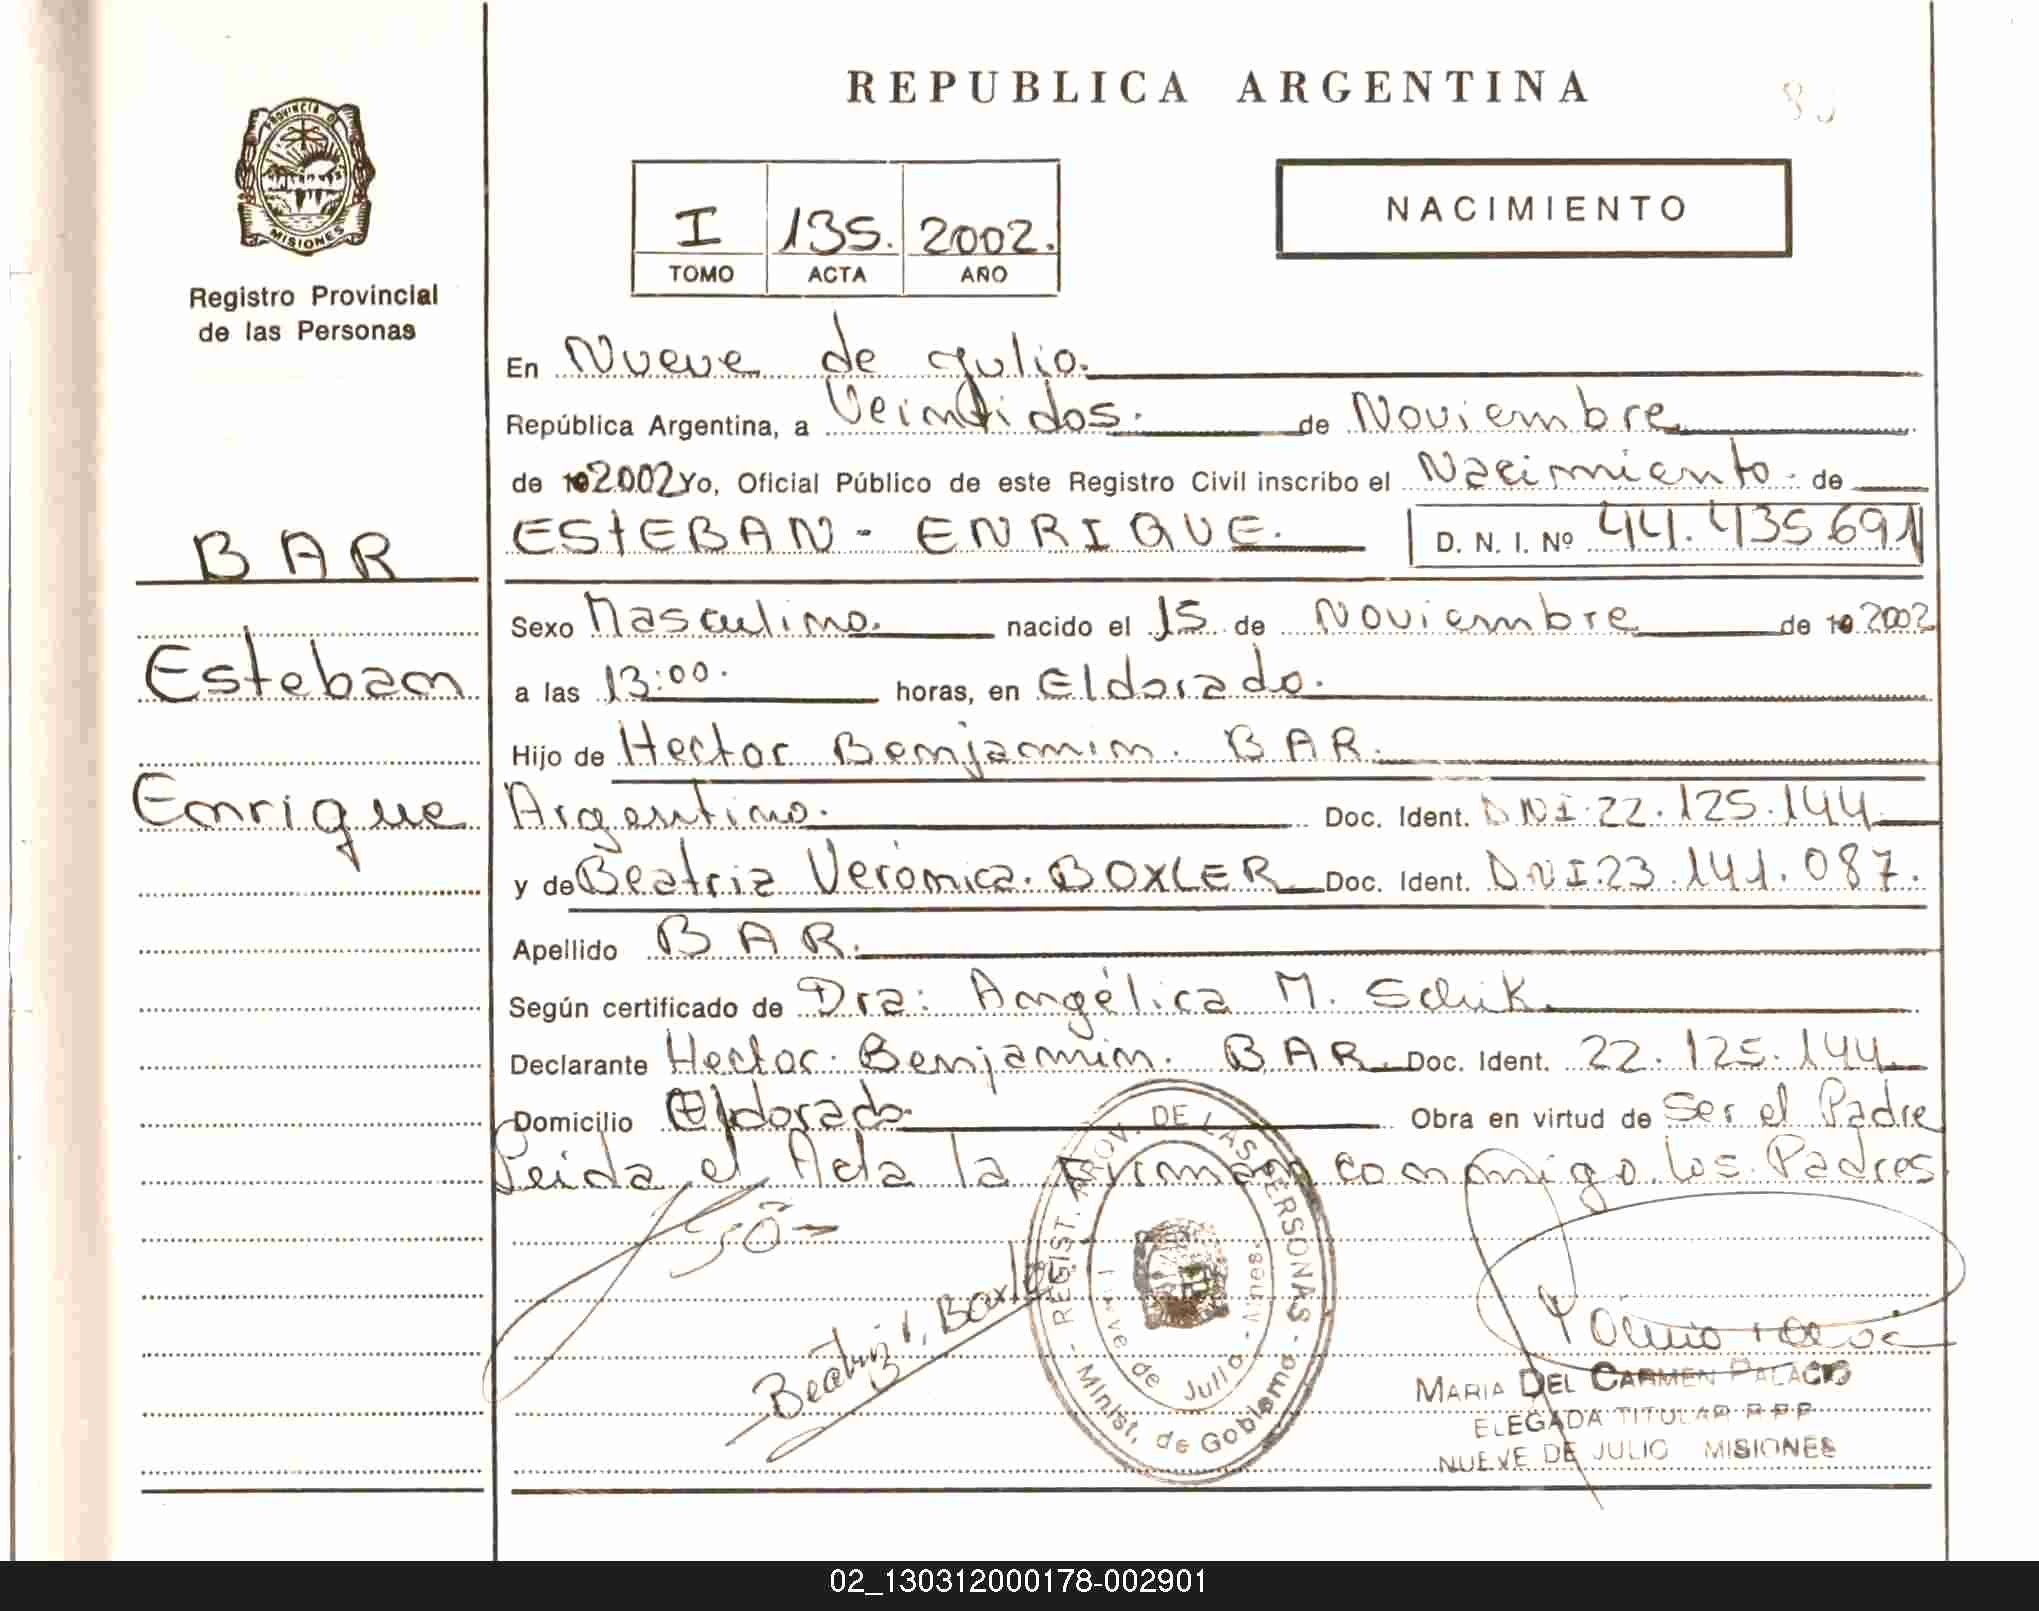 REPUBLICA ARGENTINA
PROVINCIA D
MISIONES
Registro Provincial
de las Personas
I 135. 2002.
TOMO ACTA AÑO
NACIMIENTO
En Nueve de Julio.
República Argentina, a Veintidos. de Noviembre
de 2002 Yo, Oficial Público de este Registro Civil inscribo el Nacimiento. de
ESTEBAN - ENRIQUE. D. N. I. Nº 44.435.691
BAR
Esteban
Enrique
Sexo Masculino. nacido el 15 de Noviembre de 2002
a las 13:00. horas, en Eldorado.
Hijo de Hector Benjamin. BAR.
Argentino. Doc. Ident. DNI.22.125.144
y de Beatriz Verónica. BOXLER Doc. Ident. DNI.23.141.087.
Apellido BAR.
Según certificado de Dra: Angélica M.
Declarante Hector. Benjamin. BAR Doc. Ident. 22.125.144
Domicilio Eldorado. Obra en virtud de Ser el Padre
Leida el Acta la Firman conmigo los Padres
REGIST. PROV. DE LAS PERSONAS
Minist. de Gobierno
de Julio - Mnes.
Beatriz V. Boxler
MARIA DEL CARMEN PALACIO
ELEGADA TITULAR RPP
NUEVE DE JULIO MISIONES
02_130312000178-002901